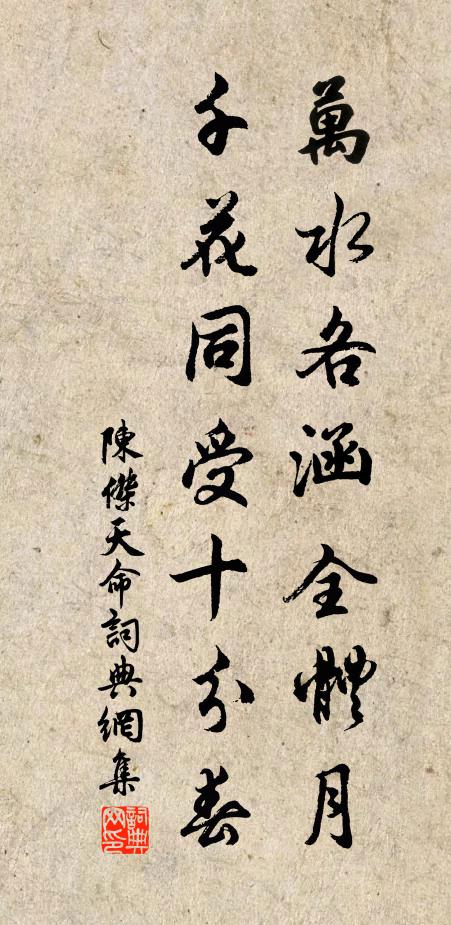 萬水各涵全體月
千花同受十分春
陳傑天命詞典網集
詞典
网印